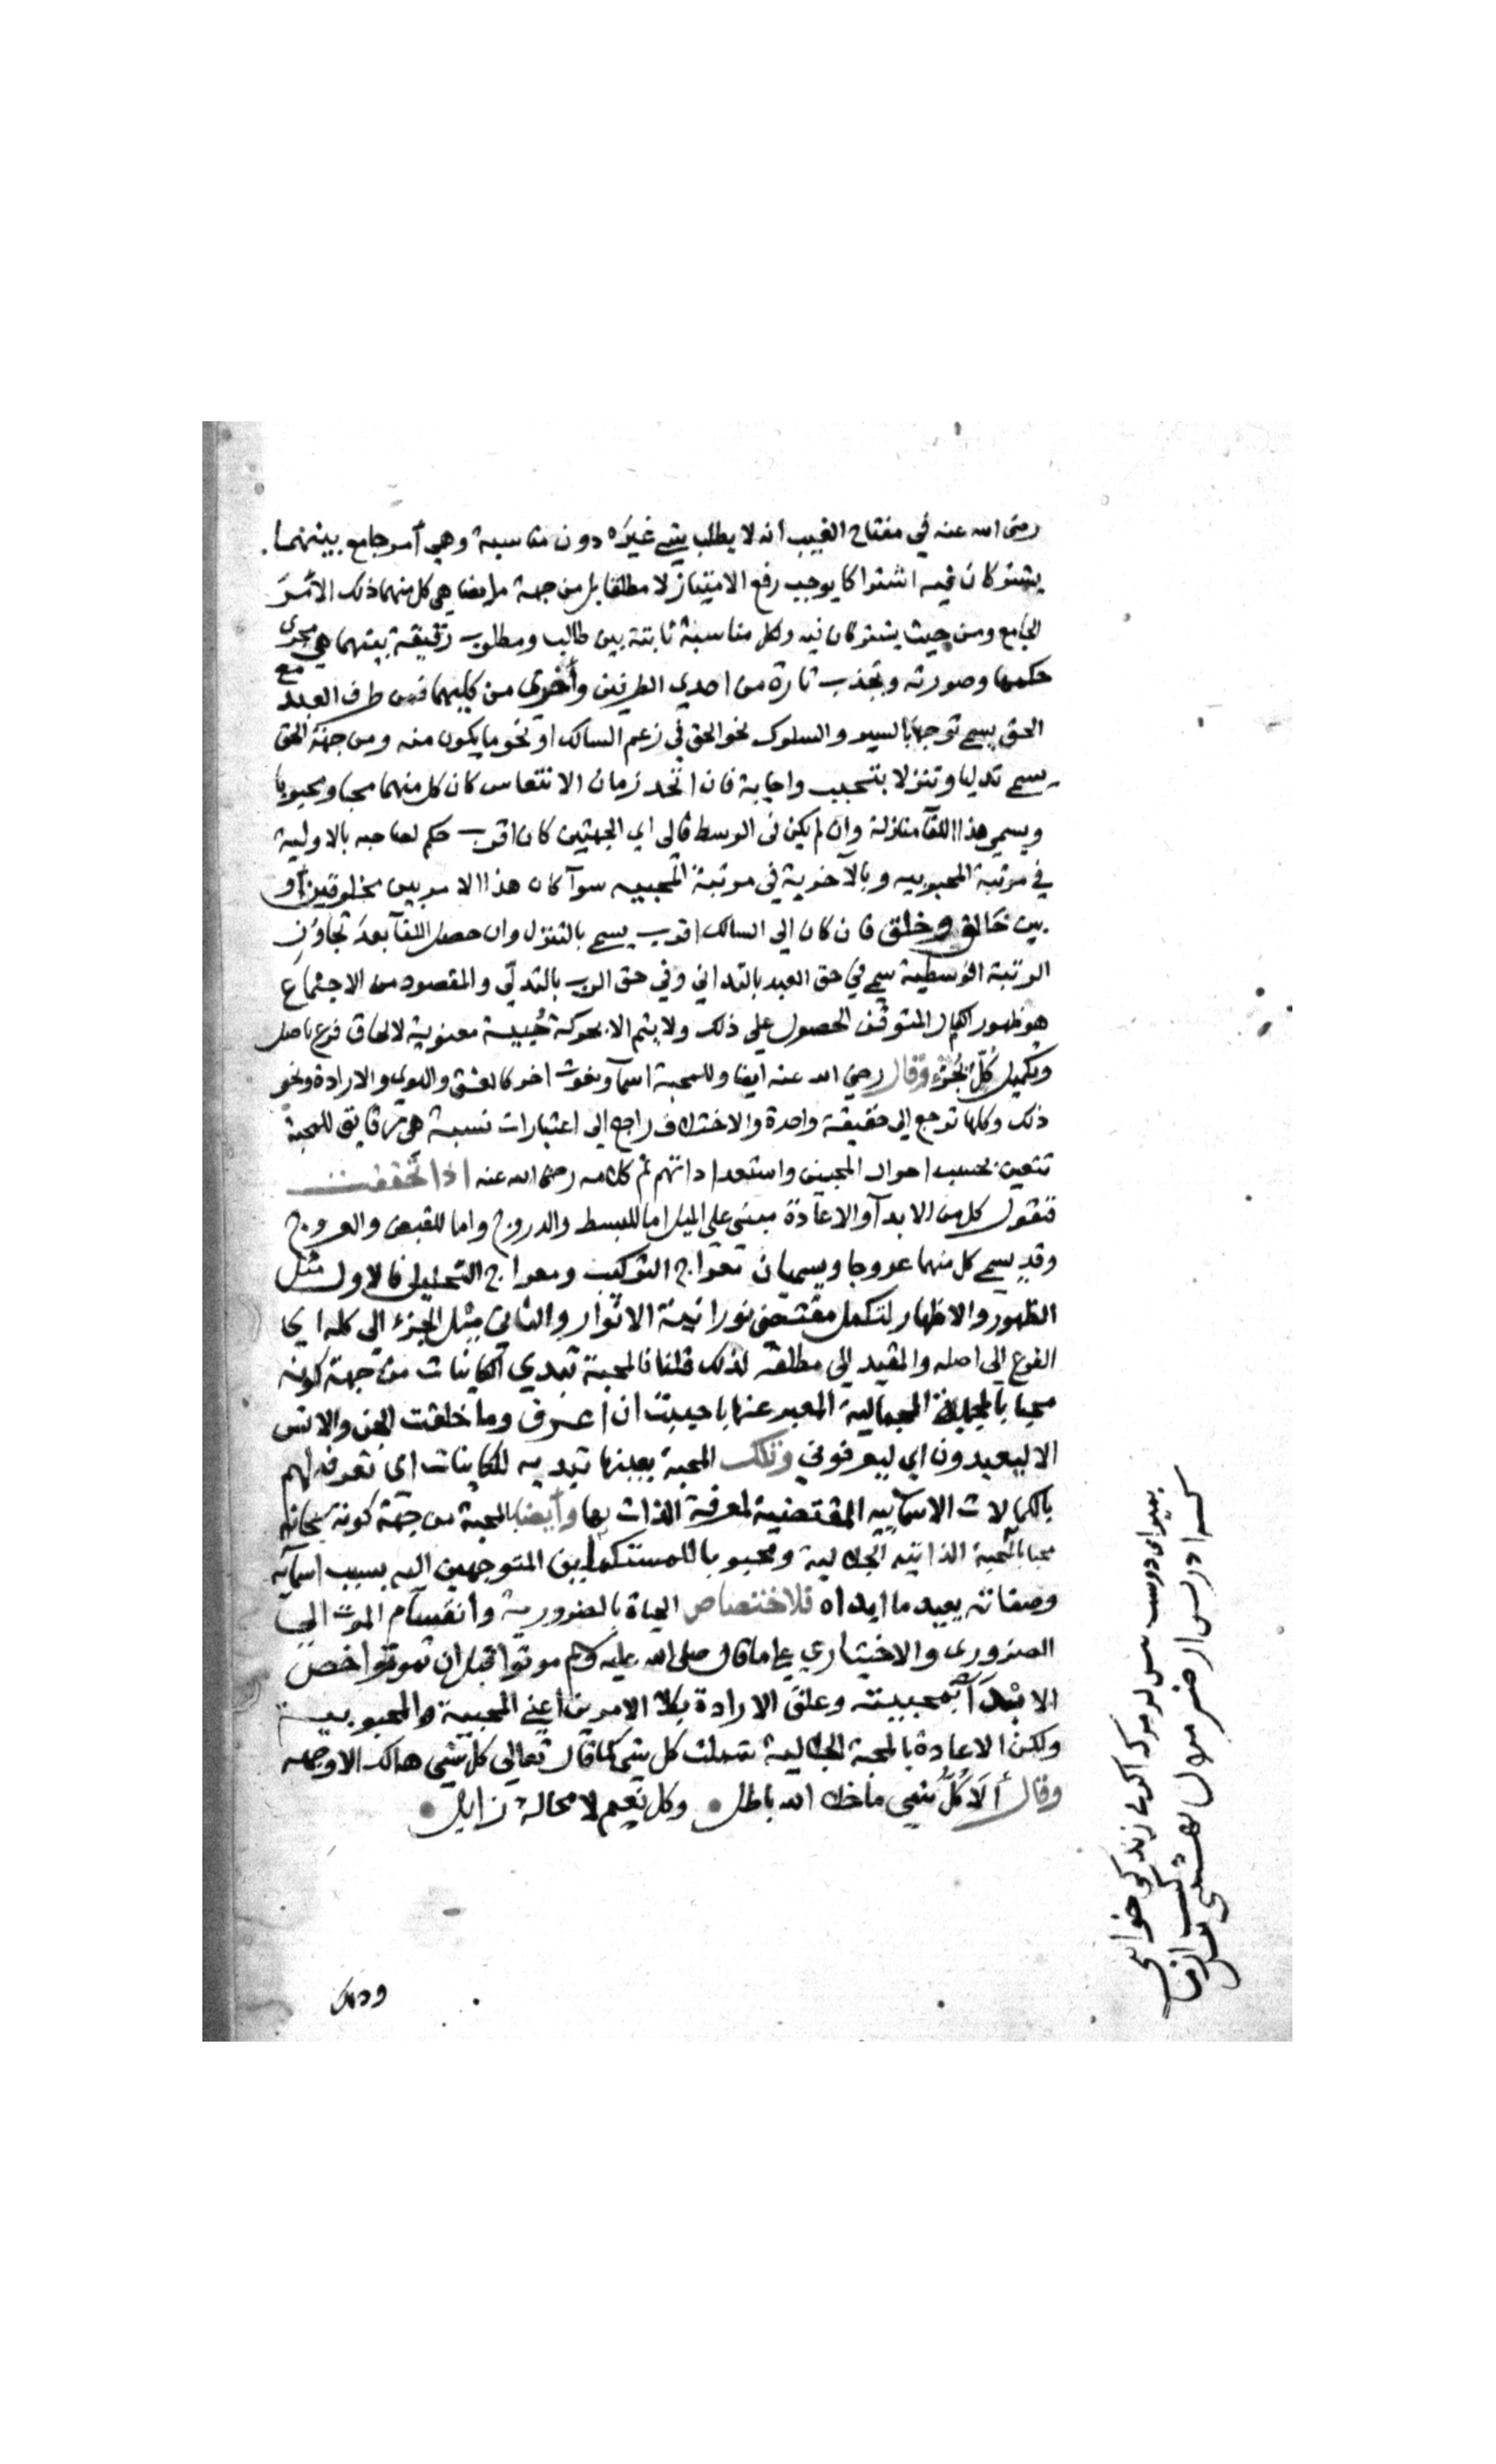 رضى الله عنه في مفتاح الغيب انه لا يطلب شي غيره دون مناسبة وهي أمر جامع بينهما
يشتركان فيه اشتراكا يوجب رفع الامتياز لا مطلقا بل من جهة ما يضاهي كل منهما ذلك الأمر
الجامع ومن حيث يشتركان فيه ولكل مناسبة ثابتة بين طالب ومطلوب رقيقة بينهما هي مجرى
حكمها وصورته وتجذب تارة من احدي الطرفين وأخرى من كليهما فمن طرف العبد مع
الحق يسمى توجها بالسير والسلوك نحو الحق في زعم السالك او نحو ما يكون منه ومن جهة الحق
يسمى تدليا وتنزلا بتحبب واجابة فان اتحد زمان الانتعاس كان كل منهما محبا ومحبوبا
ويسمى هذا اللقآ منازلة وان لم يكن في الوسط فالى اي الجهتين كان اقرب حكم لصاحبه بالاولية
في مرتبة المحبوبيه وبالآخرية في مرتبة المحبيه سوآ كان هذا الامر بين مخلوقين أو
بين خالق وخلق فان كان الى السالك اقرب يسمى بالتنزل وان حصل اللقآ بعد تجاوز
الرتبة الوسطية سمي في حق العبد بالتداني وفي حق الرب بالتدلّي والمقصود من الاجتماع
هو ظهور الكمال المتوقف الحصول على ذلك ولا يتم الا بحركة حُبيّة معنوية لالحاق فرع باصل
وتكميل كُلّ بجُزء وقال رضي الله عنه ايضا وللمحبة اسمآ ونعوت اخر كالعشق والهوى والارادة ونحو
ذلك وكلها ترجع الى حقيقة واحدة والاختلاف راجع الى اعتبارات نسبية هي رقايق للمحبة
تتعين بحسب احوال المحبين واستعداداتهم تم كلامه رضى الله عنه اذا تحققت
فنقول كل من الابدآ والاعادة مبنى على الميل اما للبسط والدروج واما للقبض والعروج
وقد يسمى كل منهما عروجا ويسميان معراج التركيب ومعراج التحليل فالاول مثل
الظهور والاظهار لتكمل مقتضى نورانية الانوار والثاني مثل الجزء الى كله اي
الفرع الى اصله والمقيد الى مطلقه لذلك قلنا فالمحبة تبدي الكاينات من جهة كونه
محبا بالمحبة الجمالية المعبر عنها باحببت ان أعرف وما خلقت الجن والانس
الا ليعبدون اي ليعرفوني وتلك المحبة بعينها تبديه للكاينات اي تعرفه لهم
بالكمالات الاسمآييه المقتضية لمعرفة الذات بها وأيضا بالمحبة من جهة كونه سبحانه
محبا بالمحبة الذاتيه الجلالية ومحبوبا للمستكملين المتوجهين اليه بسبب اسمآيه
وصفاته يعيد ما ابداه فلاختصاص الحياة بالضرورية وانقسام الموت الى
الضروري والاختياري على ما قال صلى الله عليه وسلم موتوا قبل ان تموتوا خص
الابدآ بمحبيته وعلق الارادة بكلا الامرين أعني المحبية والمحبوبية
ولكن الاعادة بالمحبة الجلالية شملت كل شي كما قال تعالى كل شي هالك الا وجهه
وقال ألا كلّ شي ما خلا الله باطل وكل نعيم لا محالة زايل
بميراى دوست پيش از مرگ اگر مى زندگى خواهى
كه ادريس از چنين مردن بهشتى گشت پيش از ما